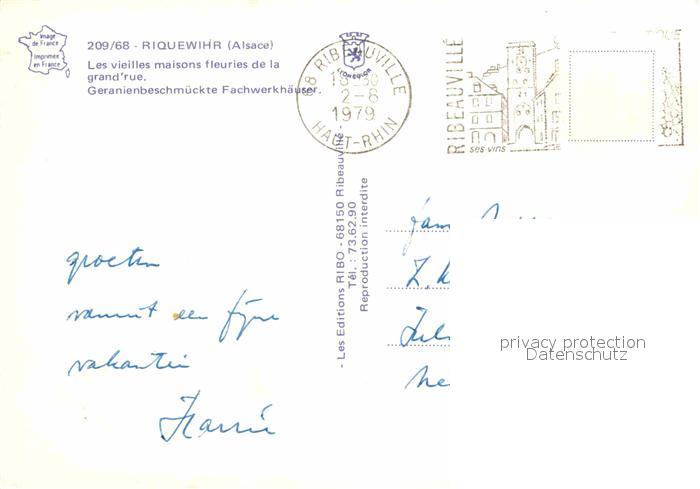 Image
de France
Imprimée
en France
209/68 - RIQUEWIHR (Alsace)
Les vieilles maisons fleuries de la
grand'rue.
Geranienbeschmückte Fachwerkhäuser.
LION COLOR
68 RIBEAUVILLE
2-8
1979
HAUT-RHIN
RIBEAUVILLÉ
ses vins
- Les Editions RIBO - 68150 Ribeauvillé -
Tél. : 73.62.90
Reproduction interdite
groeten
vanuit een fijne
vakantie
fam
Z.
privacy protection
Datenschutz